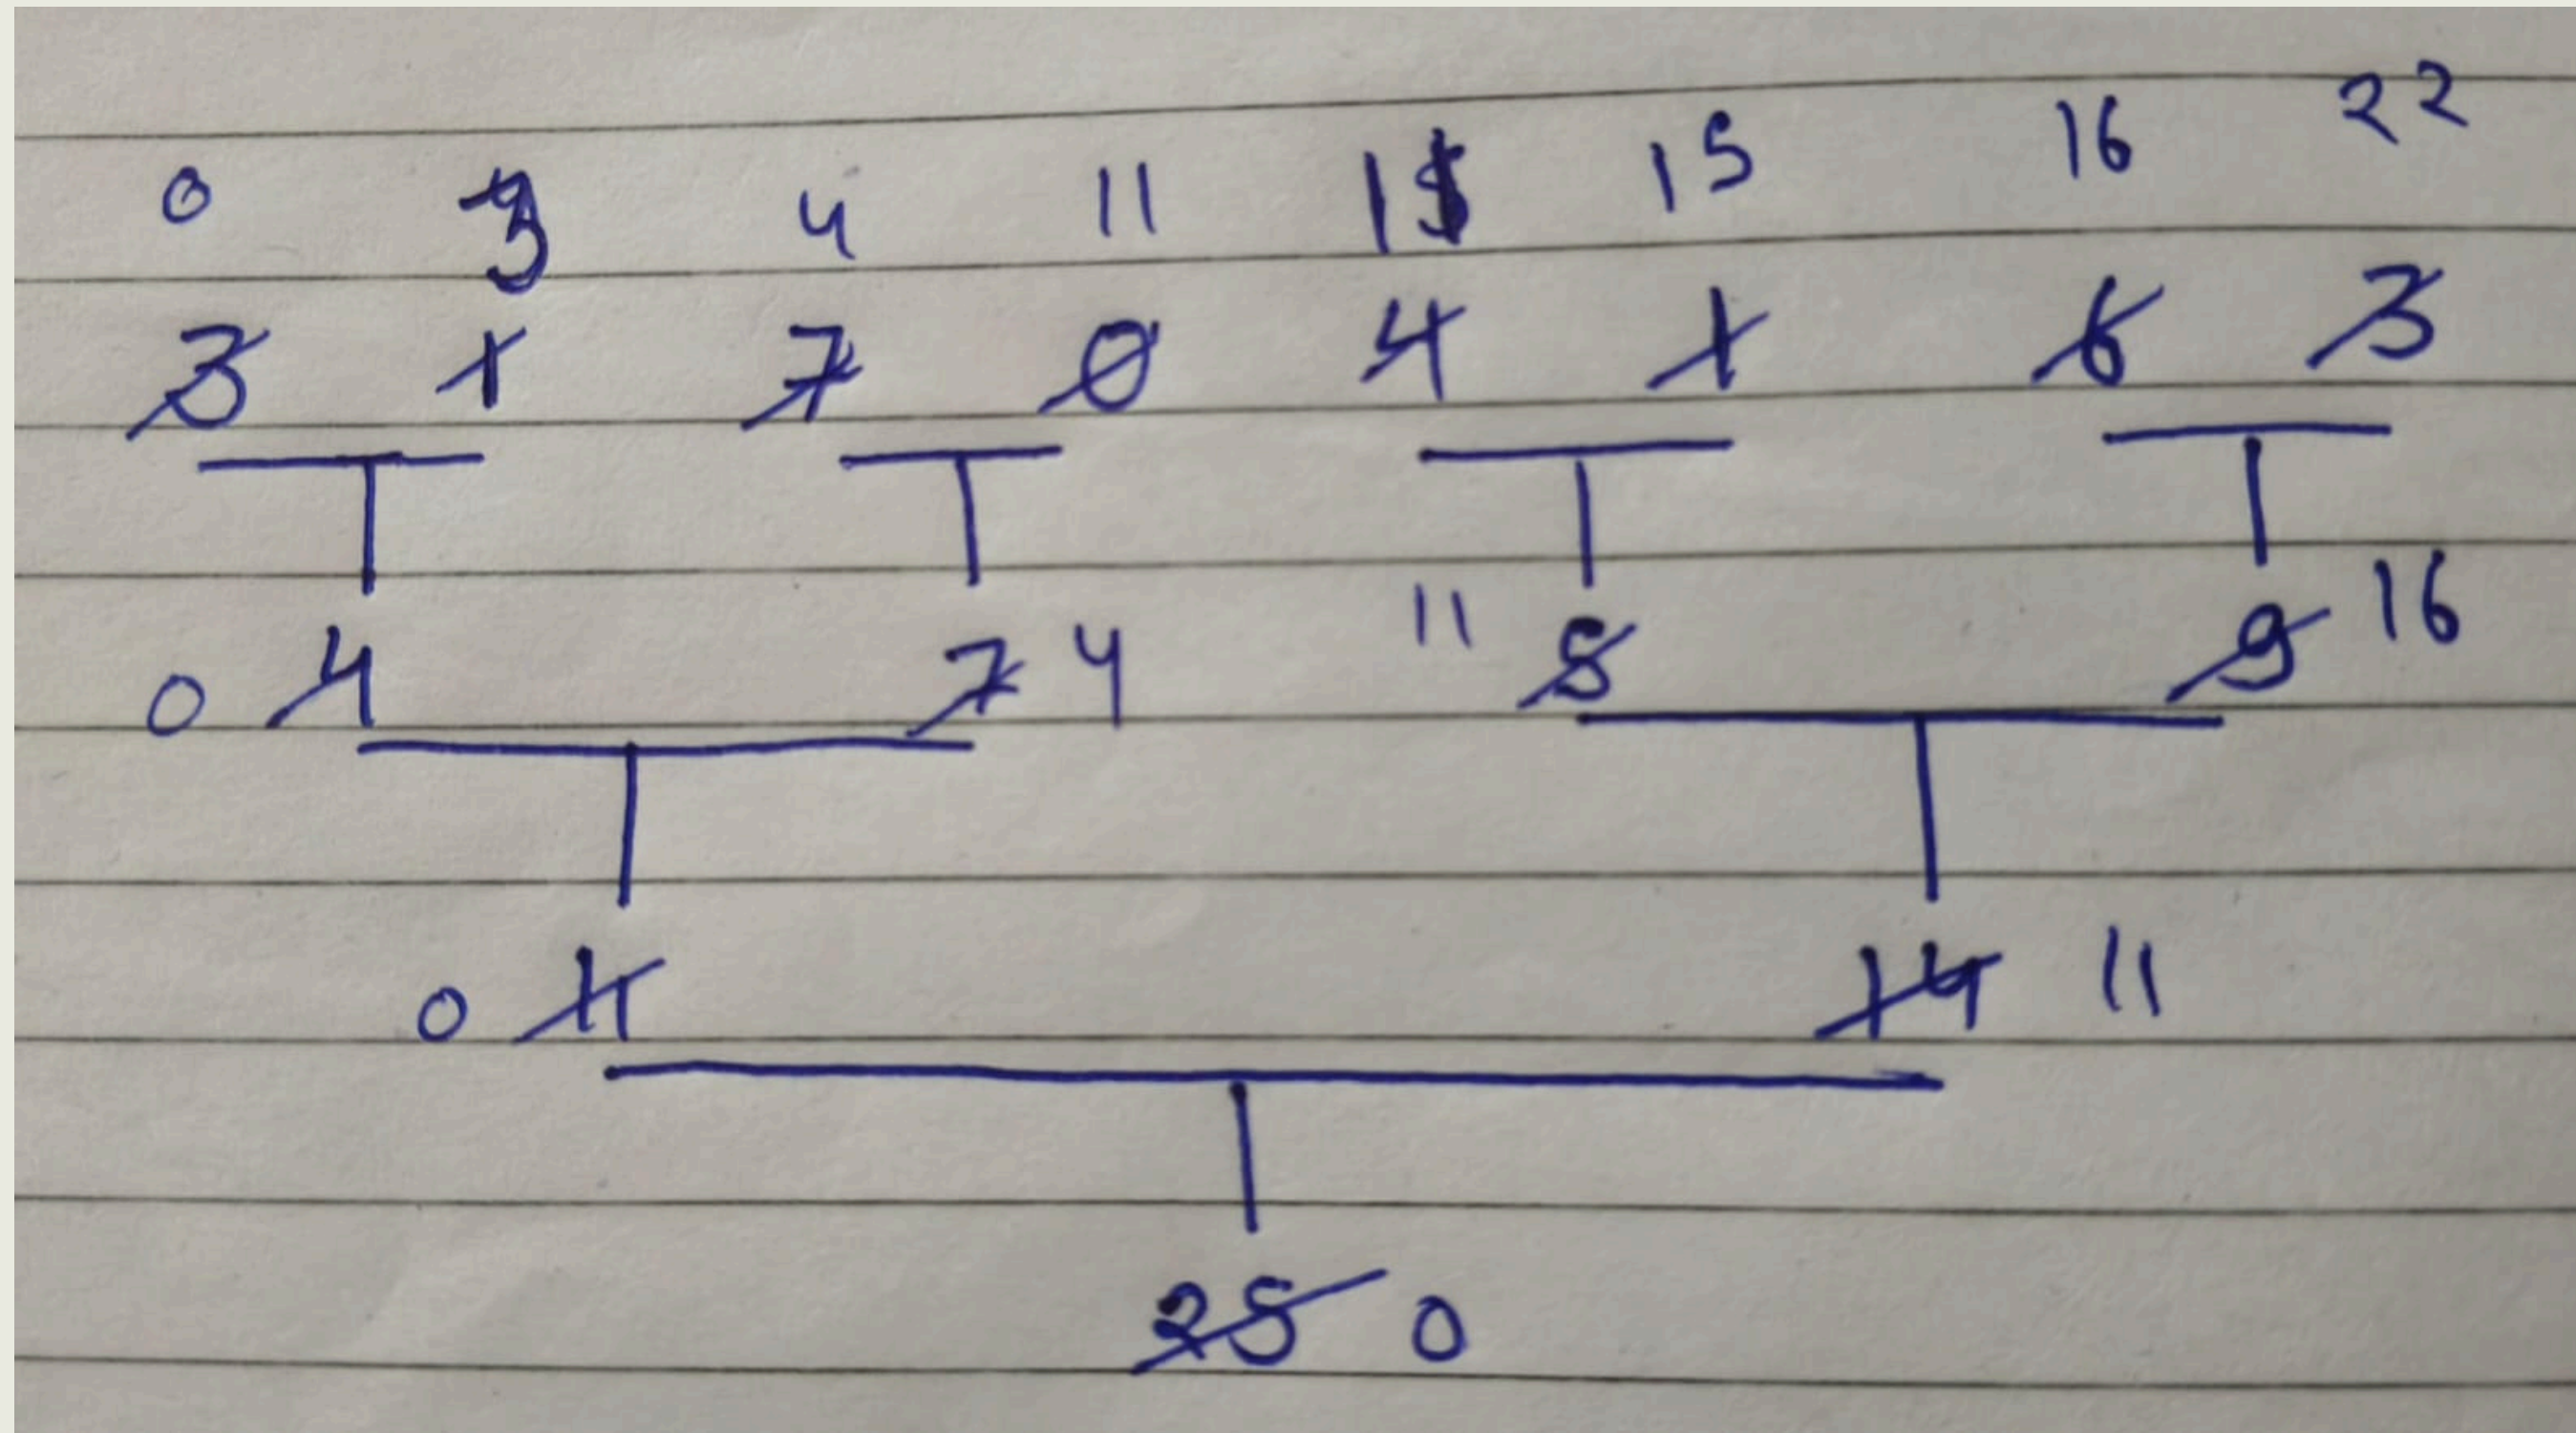 0 3 4 11 11 15 16 22
3 1 7 0 4 1 6 3
0 4 7 4 11 5 9 16
0 11 14 11
25 0